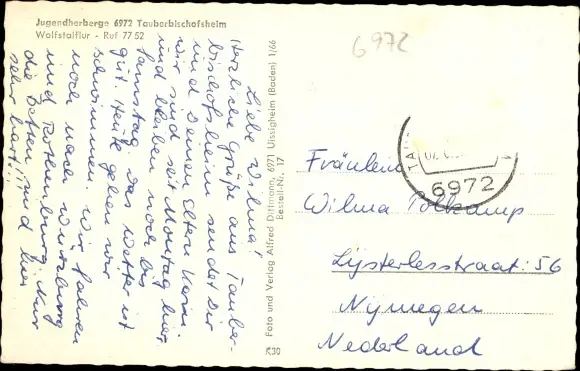 Jugendherberge 6972 Tauberbischofsheim
Wolfstalflur - Ruf 77 52
Liebe Wilma!
Herzliche Grüße aus Tauber-
bischofsheim sendet Dir
und Deinen Eltern Karin
wir sind seit Montag hier,
und bleiben noch bis
Samstag. Das Wetter ist
gut. Heute gehen wir
schwimmen. Wir fahren
noch nach Würzburg
und Rothenburg. Nur
die Betten sind hier
sehr hart!!!
Foto und Verlag Alfred Dittmann, 6971 Uissigheim (Baden) 1/66
Bestell-Nr. 17
K30
6972
TA
6972
Fräulein
Wilma Polkamp
Lijsterbesstraat: 56
Nijmegen
Nederland